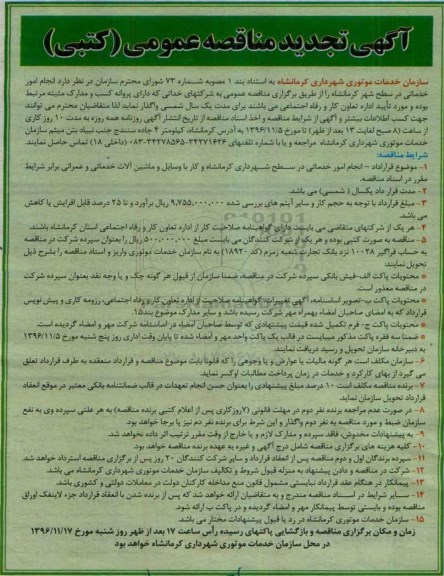 آگهی تجدید مناقصه عمومی (کتبی)
سازمان خدمات موتوری شهرداری کرمانشاه به استناد بند ۱ مصوبه شماره ۷۳ شورای محترم سازمان در نظر دارد انجام امور
خدماتی در سطح شهر کرمانشاه را از طریق برگزاری مناقصه عمومی به شرکتهای خدماتی که دارای پروانه کسب و مدارک مثبته مرتبط
بوده و مورد تأیید اداره تعاون کار و رفاه اجتماعی می باشند برای مدت یک سال شمسی واگذار نماید لذا متقاضیان محترم می توانند
جهت کسب اطلاعات بیشتر و آگهی از شرایط مناقصه و اخذ اسناد مناقصه از تاریخ انتشار آگهی روزنامه همه روزه به مدت ۱۰ روز کاری
از ساعت (۸ صبح لغایت ۱۳ بعد از ظهر) تا مورخ ۱۳۹۶/۱۱/۵ به آدرس کرمانشاه، کیلومتر ۴ جاده سنندج جنب نبیاد بتن میثم سازمان
خدمات موتوری شهرداری کرمانشاه مراجعه و یا با شماره تلفنهای ۳۴۲۷۱۶۲۶-۳۴۲۷۸۵۶۵-۰۸۳ (داخلی ۱۸) تماس حاصل نمایند.
شرایط مناقصه:
۱- موضوع قراداد – انجام امور خدماتی در سطح شهرداری کرمانشاه و کار با وسایل و ماشین آلات خدماتی و عمرانی برابر شرایط
مقرر در اسناد مناقصه.
۲- مدت قرار داد یکسال ( شمسی) می باشد.
۳- مبلغ قرارداد با توجه به حجم کار و سایر آیتم های بررسی شده ۹,۷۵۵,۰۰۰,۰۰۰ ریال برآورد و تا ۲۵ درصد قابل افزایش یا کاهش
می باشد.
۴- هر یک از شرکتهای متقاضی می بایست دارای گواهینامه صلاحیت کار از اداره تعاون کار و رفاه اجتماعی استان کرمانشاه باشند.
۵- مناقصه به صورت کتبی بوده و هر یک از شرکت کنندگان می بایست مبلغ ۵۰۰,۰۰۰,۰۰۰ ریال را بعنوان سپرده شرکت در مناقصه
به حساب فراگیر ۱۰۰۲۸ نزد بانک تجارت شعبه زمزم (کد ۱۸۹۲۰) به نام سازمان خدمات موتوری واریز و اسناد مناقصه را بشرح ذیل
تحویل نمایند.
محتویات پاکت الف-فیش بانکی سپرده شرکت در مناقصه، ضمنا سازمان از قبول هر گونه چک و یا وجه نقد بعنوان سپرده شرکت
در مناقصه معذور است.
محتویات پاکت ب-تصویر اساسنامه، آگهی تغییرات، گواهینامه صلاحیت از اداره تعاون کار و رفاه اجتماعی، رزومه کاری و پیش نویس
قرارداد که به امضای صاحبان امضاء بهمراه مهر شرکت رسیده باشد و سایر مدارک موضوع بند۱۵.
محتویات پاکت ج- فرم تکمیل شده قیمت پیشنهادی که توسط صاحبان امضاء در اساسنامه شرکت مهر و امضاء گردیده است.
ضمنا سه فقره پاکت مذکور میبایست در قالب یک پاکت واحد مهر و امضاء شده تا پایان وقت اداری روز پنج شنبه مورخ ۱۳۹۶/۱۱/۵
به دبیرخانه سازمان تحویل و رسید دریافت نمایند.
۶- سازمان مکلف است هر گونه مالیات یا عوارض و یا وجوهی را که قانونا بابت موضوع مناقصه و قرارداد منعقده به طرف قرارداد تعلق
می گیرد از بهای کارکرد و خدمات در زمان پرداخت مطالبات او کسر نماید.
۷- برنده مناقصه مکلف است ۱۰ درصد مبلغ پیشنهادی را بعنوان حسن انجام تعهدات در قالب ضمانتنامه بانکی معتبر در موقع انعقاد
قرارداد تحویل سازمان نماید.
۸- در صورت عدم مراجعه برنده نفر دوم در مهلت قانونی (۷روزکاری پس از اعلام کتبی برنده مناقصه) به هر علتی سپرده وی به نفع
سازمان ضبط و مورد مناقصه به نفر دوم واگذار و این شرط برای برنده نفر دم نیز پا برجا خواهد بود.
۹- به پیشنهادات مخدوش، فاقد سپرده و مدارک لازم و یا خارج از وقت مقرر ترتیب اثر داده نخواهد شد.
۱۰- کلیه هزینه های برگزاری مناقصه شامل درج آگهی و غیره به عهده برنده مناقصه خواهد بود.
۱۱- سپرده برندگان اول و دوم مناقصه پس از انعقاد قرارداد و سایر شرکت کنندگان ۲۰ روز پس از برگزاری مناقصه استرداد خواهد شد.
۱۲- شرکت در مناقصه و دادن پیشنهاد به منزله قبول شروط و تکالیف سازمان خدمات موتوری شهرداری کرمانشاه می باشد.
۱۳- پیمانکار در هنگام عقد قرارداد نبایستی مشمول قانون منع مداخله کارکنان دولت در معاملات دولتی و کشوری باشد.
۱۴- سایر شرایط در اسناد مناقصه مندرج و به متقاضیان ارائه خواهد شد که پس از برنده شدن با انعقاد قرارداد جزء لاینفک اوراق
مناقصه بوده و بایستی توسط پیمانکار مهر و امضاء گردیده و در پاکت ب ارائه شود.
۱۵- سازمان خدمات موتوری کرمانشاه در رد یا قبول پیشنهادات مختار می باشد.
زمان و مکان برگزاری مناقصه و بازگشایی پاکتهای رسیده رأس ساعت ۱۷ بعد از ظهر روز شنبه مورخ ۱۳۹۶/۱۱/۱۷
در محل سازمان خدمات موتوری شهرداری کرمانشاه خواهد بود